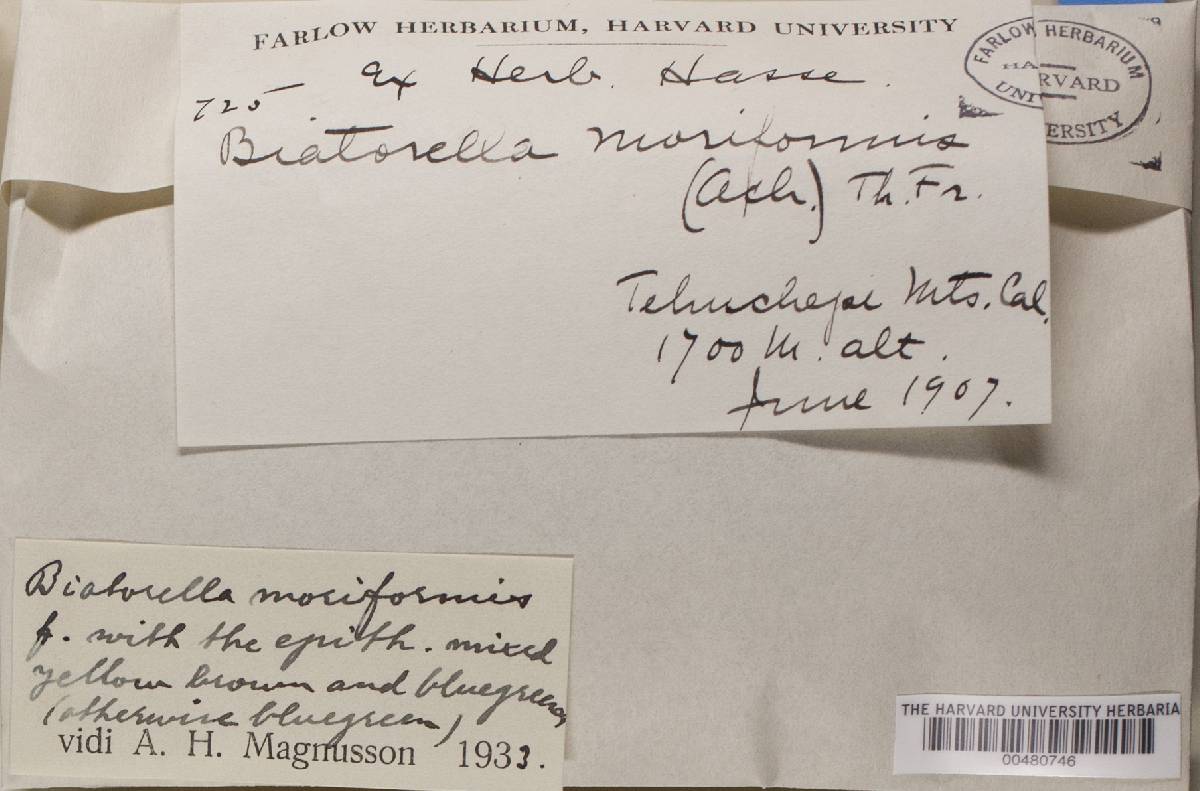 FARLOW HERBARIUM, HARVARD UNIVERSITY
Ex Herb. Hasse.
725
Biatorella moriformis
(Ach.) Th. Fr.
Tehuchepe Mts. Cal.
1700 M. alt.
June 1907.
FARLOW HERBARIUM
HARVARD
UNIVERSITY
Biatorella moriformis
f. with the epith. mixed
yellow brown and bluegreen
(otherwise bluegreen)
vidi A. H. Magnusson 1933.
THE HARVARD UNIVERSITY HERBARIA
00480746